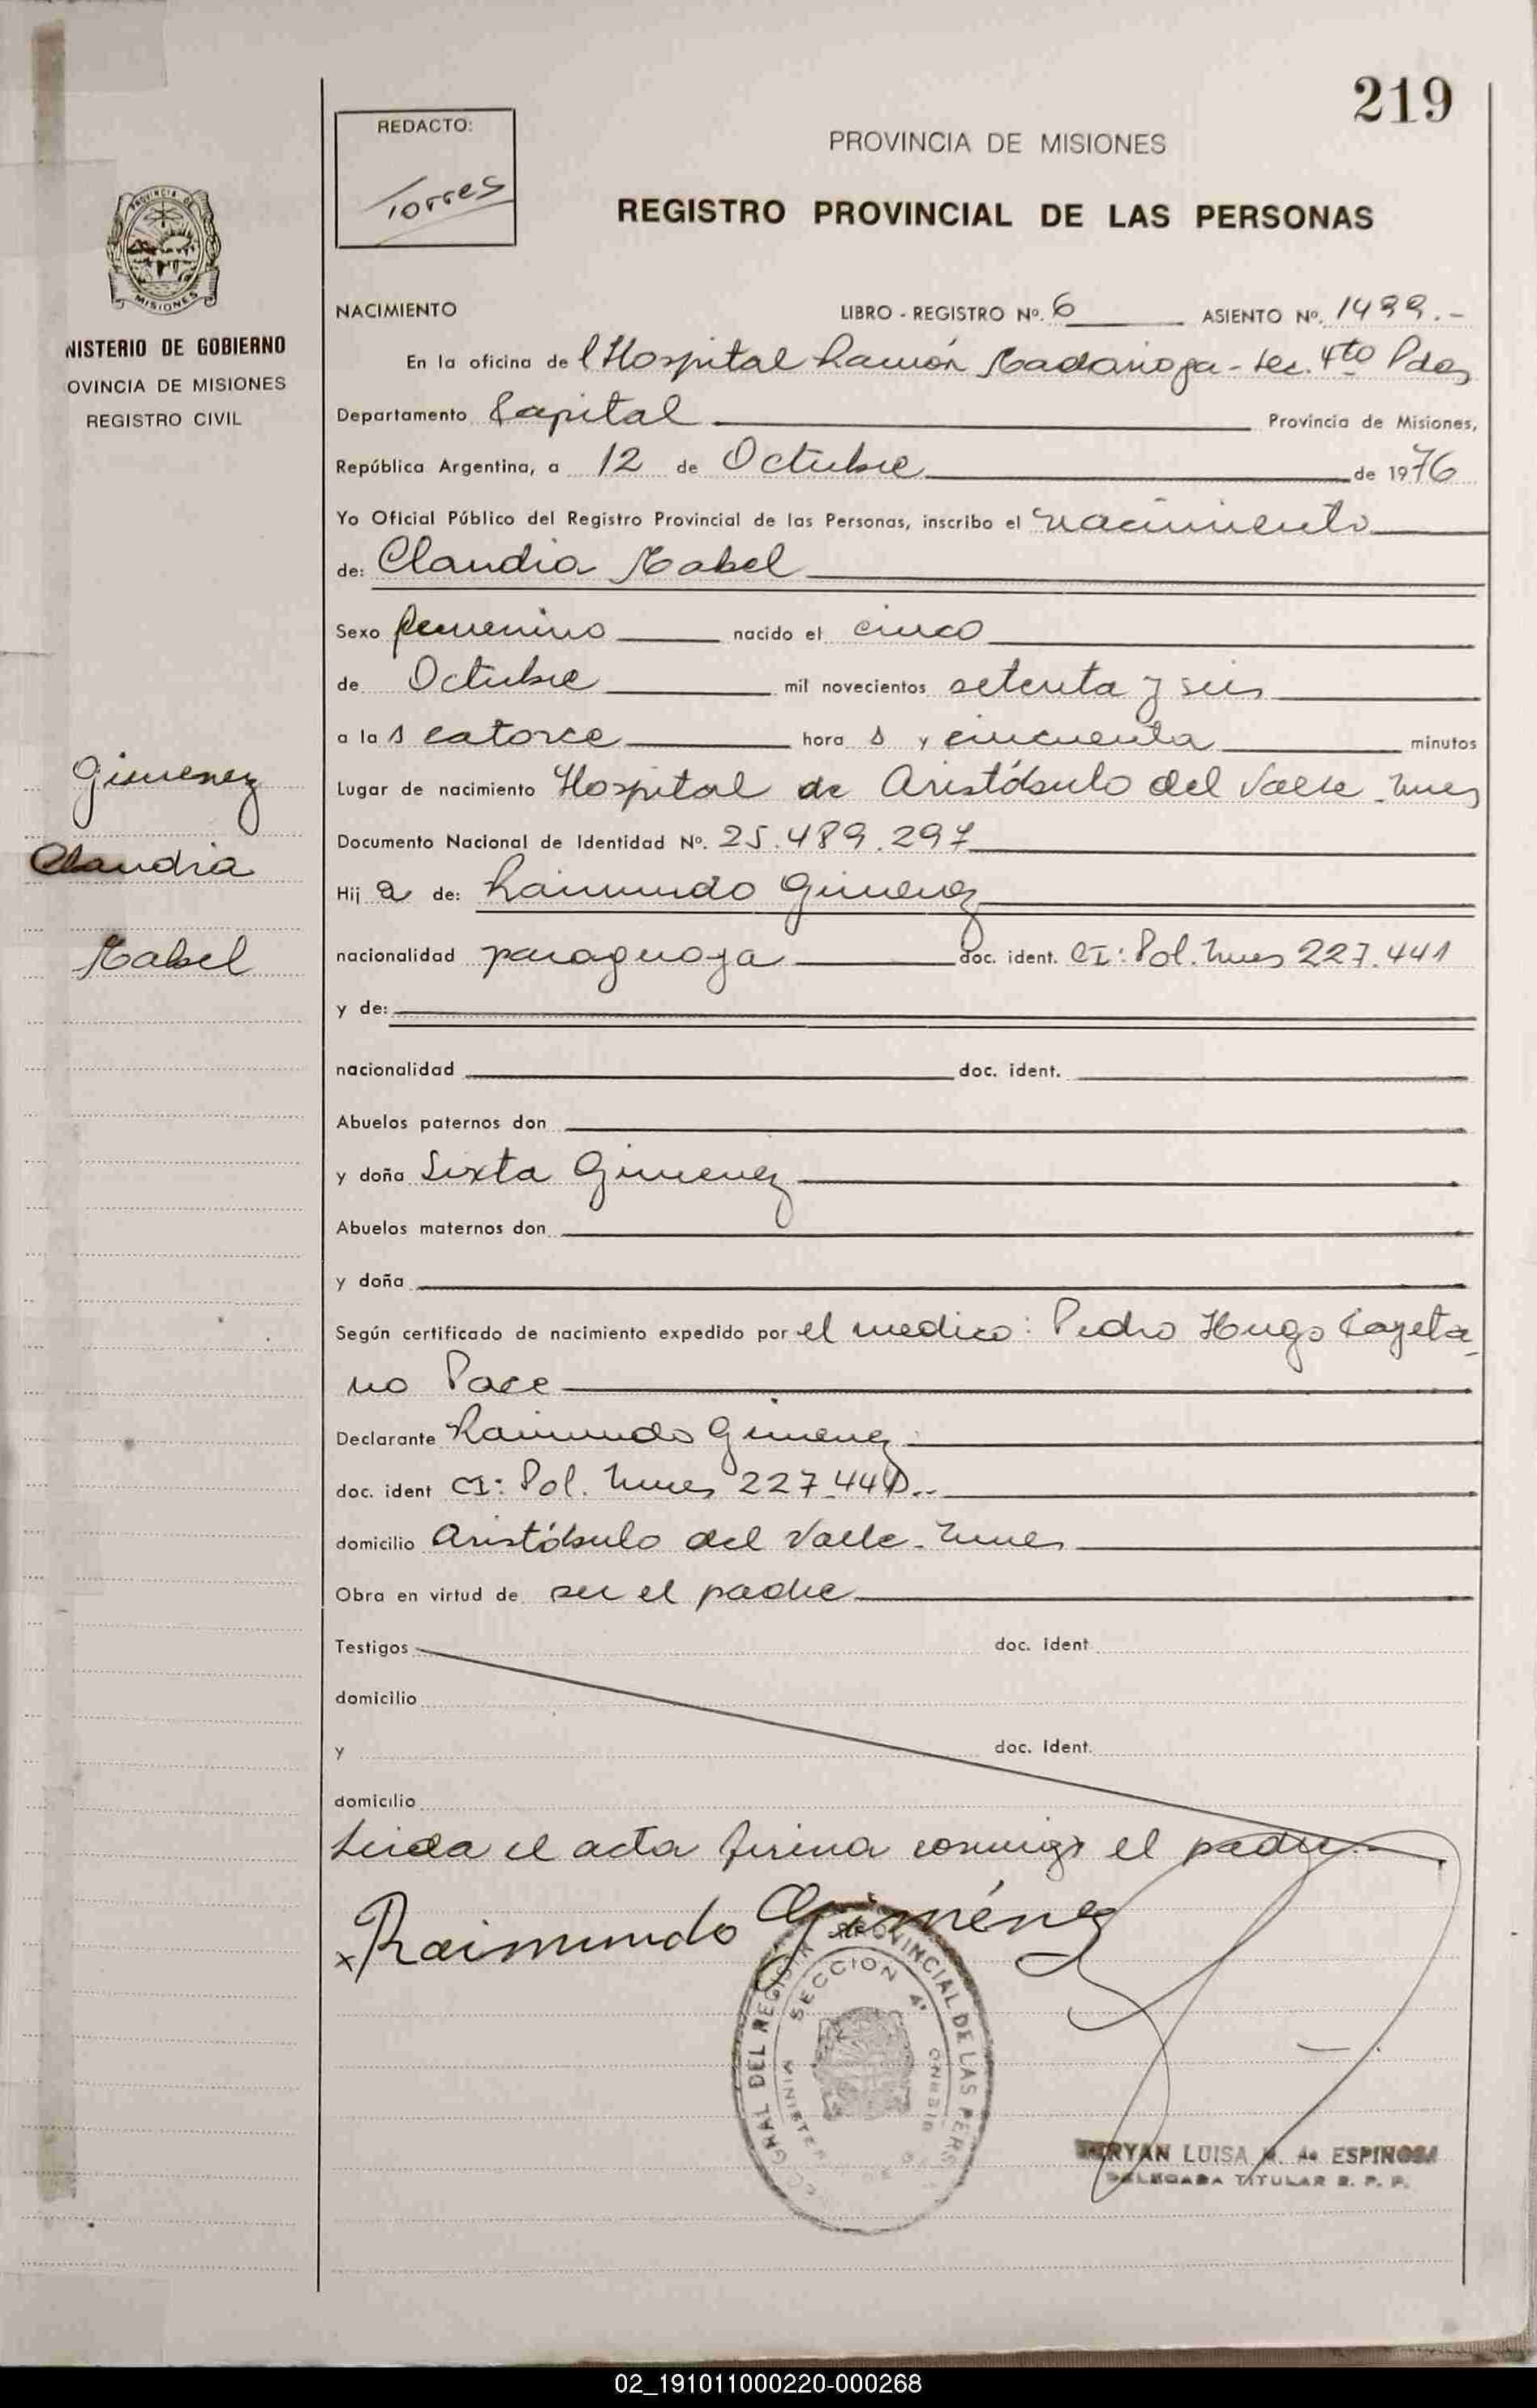 219
REDACTO:
Torres
PROVINCIA DE MISIONES
REGISTRO PROVINCIAL DE LAS PERSONAS
PROVINCIA DE
MISIONES
NISTERIO DE GOBIERNO
OVINCIA DE MISIONES
REGISTRO CIVIL
NACIMIENTO LIBRO - REGISTRO Nº. 6 ASIENTO Nº. 1499.-
En la oficina del Hospital Ramón Madariaga - Sec. 4to Pdas
Departamento Capital Provincia de Misiones,
República Argentina, a 12 de Octubre de 1976
Yo Oficial Público del Registro Provincial de las Personas, inscribo el nacimiento
de: Claudia Mabel
Sexo femenino nacido el cinco
de Octubre mil novecientos setenta y seis
a las catorce horas y cincuenta minutos
Gimenez
Claudia
Mabel
Lugar de nacimiento Hospital de Aristóbulo del Valle - Mnes
Documento Nacional de Identidad Nº. 25.489.297
Hija de: Raimundo Gimenez
nacionalidad paraguaya doc. ident. CI: Pol. Mnes 227.441
y de:
nacionalidad doc. ident.
Abuelos paternos don
y doña Sixta Gimenez
Abuelos maternos don
y doña
Según certificado de nacimiento expedido por el medico: Pedro Hugo Cayeta-
no Pace
Declarante Raimundo Gimenez
doc. ident CI: Pol. Mnes
domicilio Aristóbulo del Valle - Mnes
Obra en virtud de ser el padre
Testigos doc. ident
domicilio
y doc. ident.
domicilio
Leida el acta firma conmigo el padre
x Raimundo Giménez
GRAL DEL REGISTRO PROVINCIAL DE LAS PERS
SECCION 4ª
LUISA M. de ESPINOSA
DELEGADA TITULAR R. P. P.
02_191011000220-000268